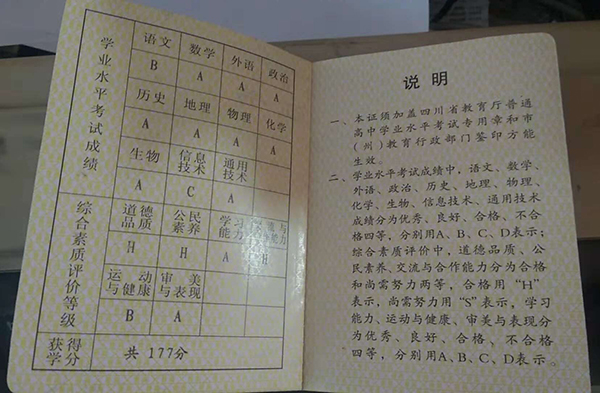 学业水平考试成绩
语文 数学 外语 政治
B A A A
历史 地理 物理 化学
A A A A
生物 信息技术 通用技术
A C A
综合素质评价等级
道德品质 公民素养 学习能力
H H A H
运动与健康 审美与表现
B A
获得学分
共 177分
说 明
一、本证须加盖四川省教育厅普通
高中学业水平考试专用章和市
（州）教育行政部门鉴印方能
生效。
二、学业水平考试成绩中，语文、数学、
外语、政治、历史、地理、物理、
化学、生物、信息技术、通用技术
成绩分为优秀、良好、合格、不合
格四等，分别用A、B、C、D表示；
综合素质评价中，道德品质、公
民素养、交流与合作能力分为合格
和尚需努力两等，合格用“H”
表示，尚需努力用“S”表示，学习
能力、运动与健康、审美与表现分
为优秀、良好、合格、不合格
四等，分别用A、B、C、D表示。